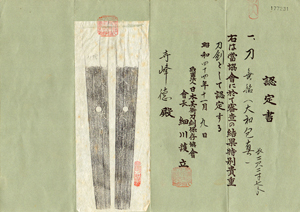 認定書
一、刀 無銘(大和包真)
右は當協會に於て審査の結果特別貴重
刀剣として認定する
昭和四十四年十一月九日
財團法人日本美術刀剣保存協會
會長 細川護立
殿